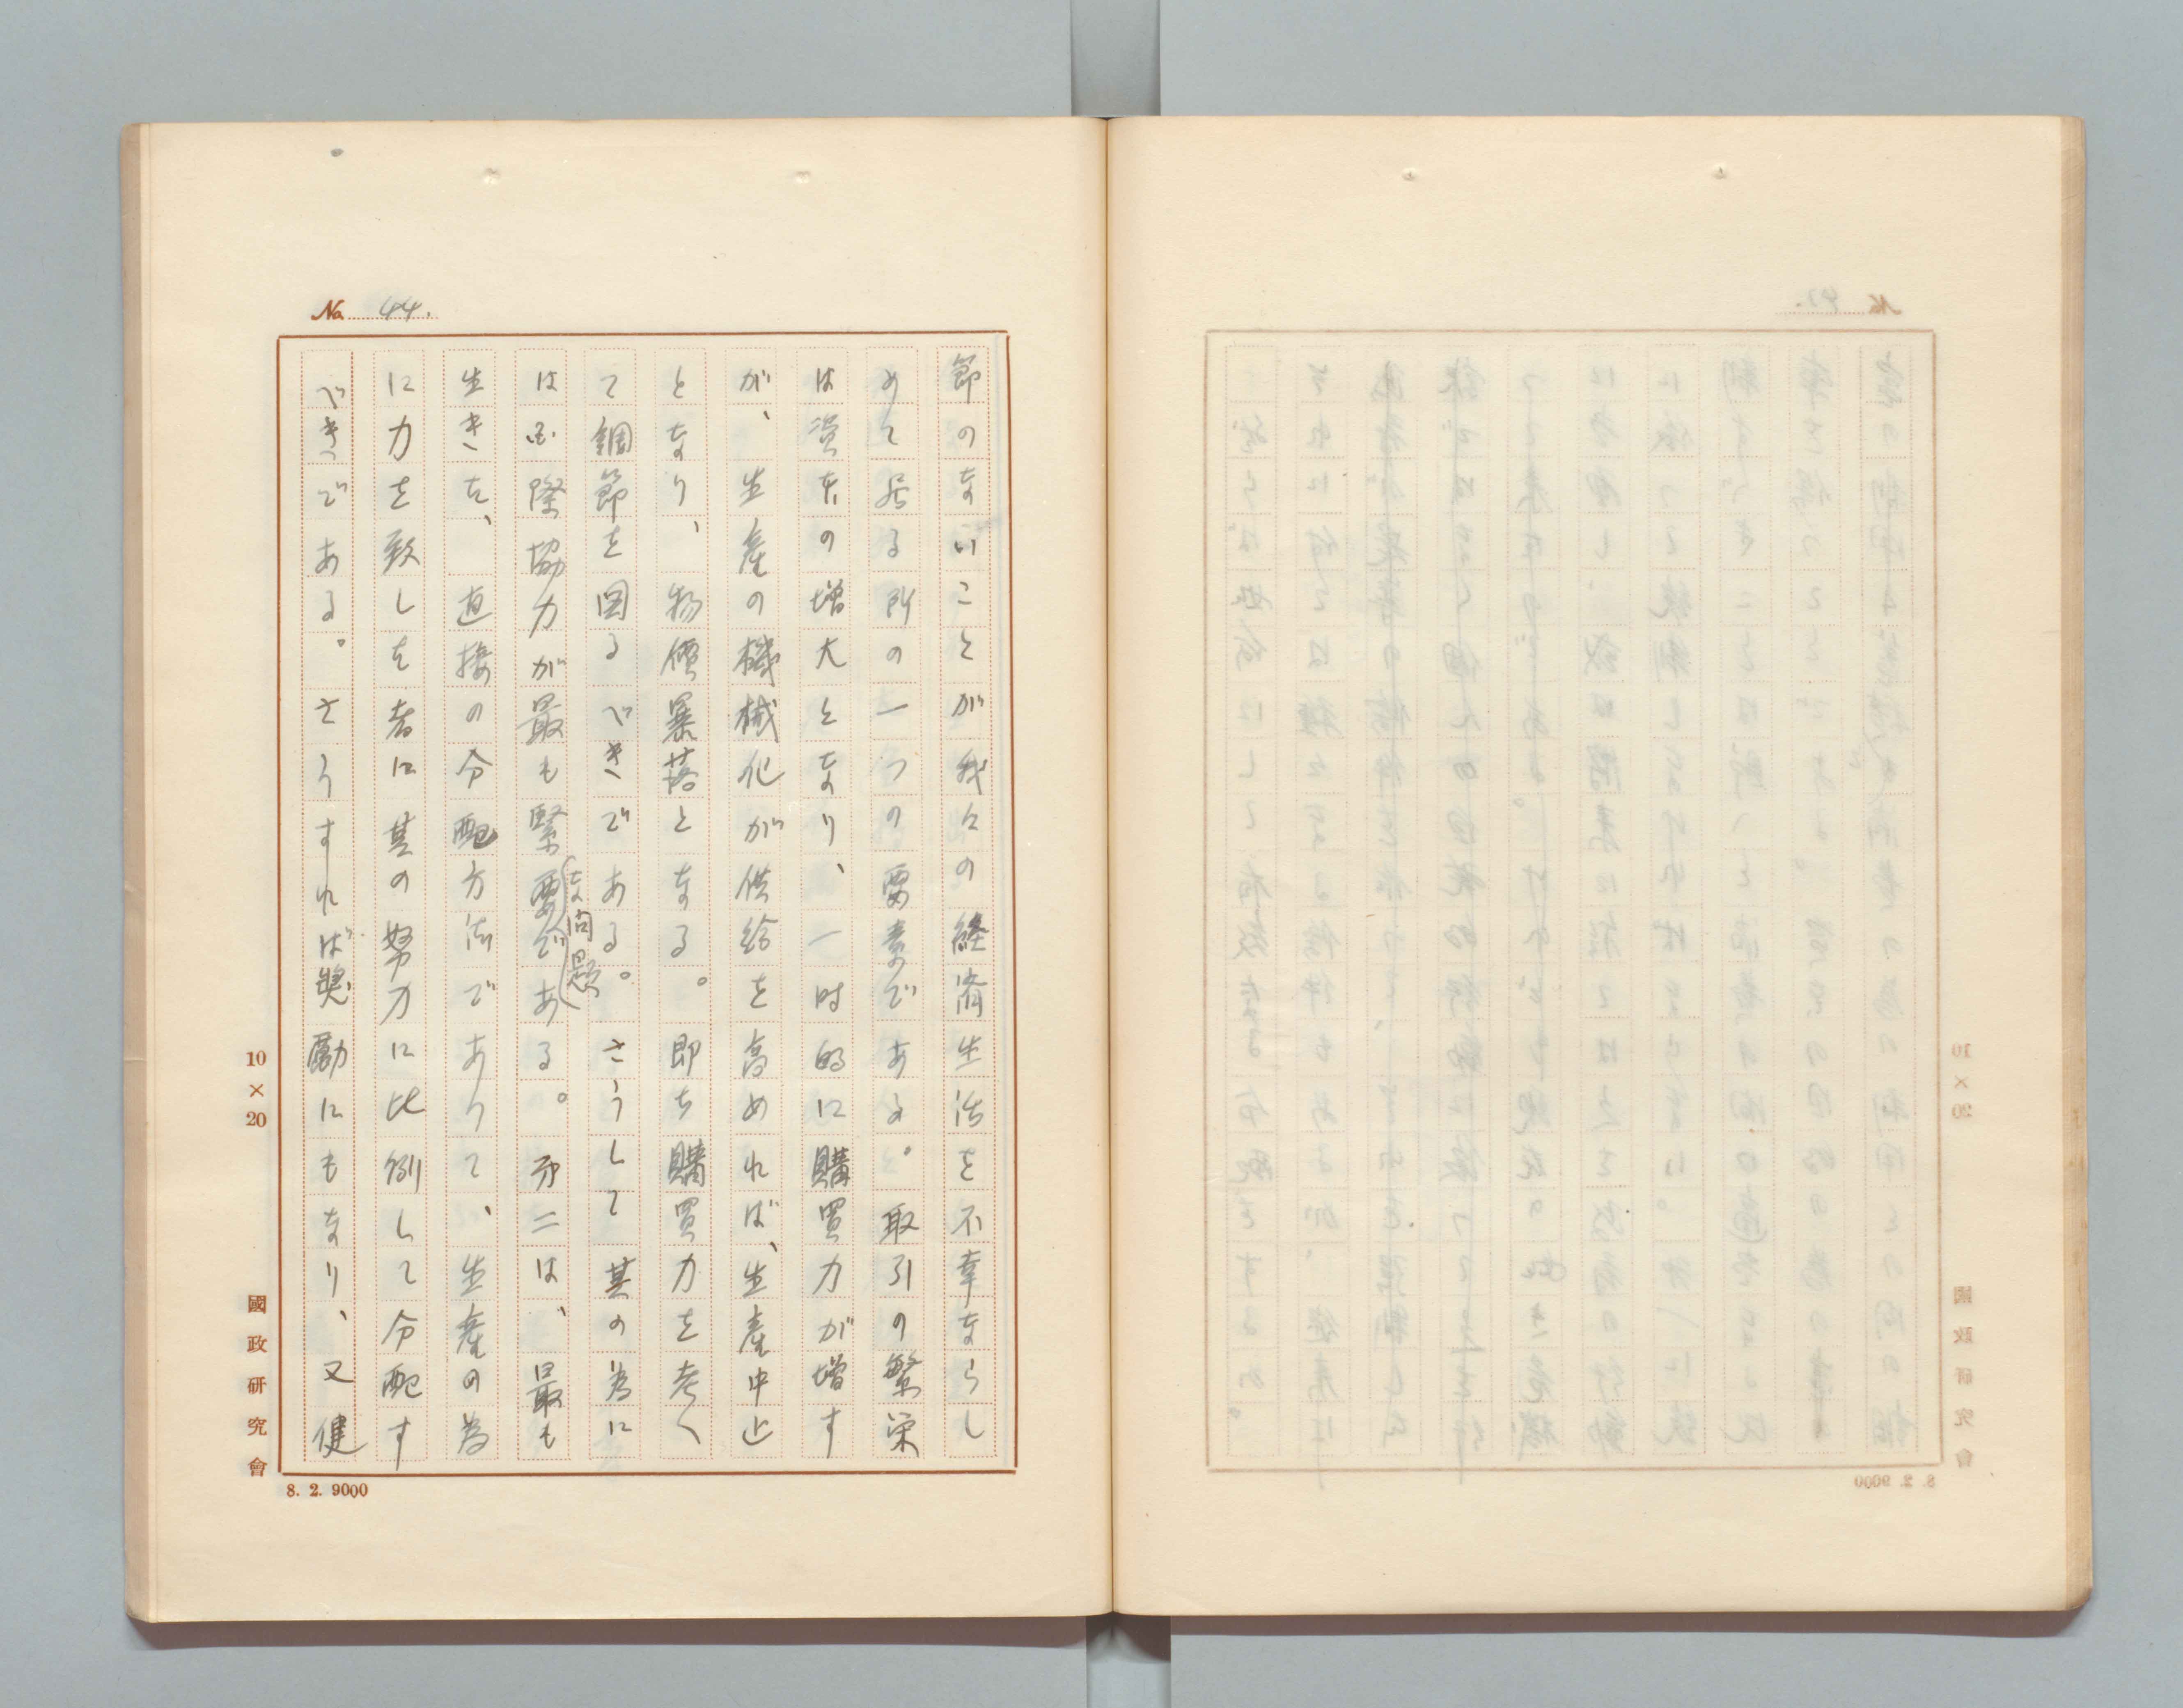 No. 44.
節のないことが我々の経済生活を不幸ならし
めて居る所の一つの要素である。取引の繁栄
は資本の増大となり、一時的に購買力が増す
が、生産の機械化が供給を高めれば、生産中止
となり、物価暴落となる。即ち購買力を考へ
て調節を図るべきである。さうして其の為に
は国際協力が最も緊要な問題である。第二は、最も
生きた、直接の分配方法でありて、生産の為
に力を致した者に其の努力に比例して分配す
べきである。さうすれば奨励にもなり、又健
10×20
國政研究會
8. 2. 9000